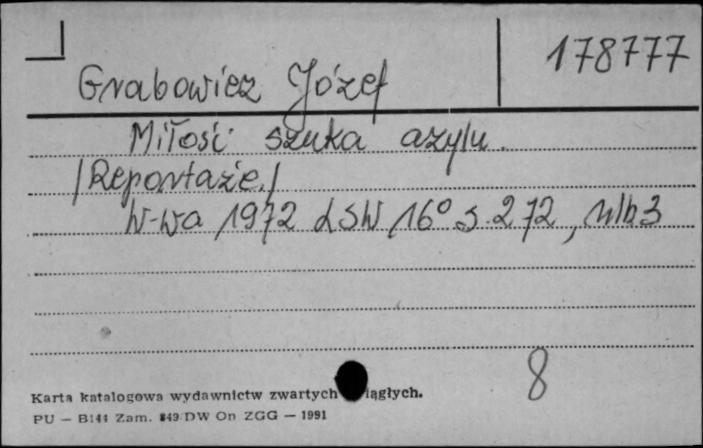 178777
Grabowicz Józef
Miłość szuka azylu.
/Reportaże./
W-wa 1972 LSW 16° s. 272, nlb 3
8
Karta katalogowa wydawnictw zwartych iągłych.
PU — B144 Zam. 849 DW On ZGG — 1991